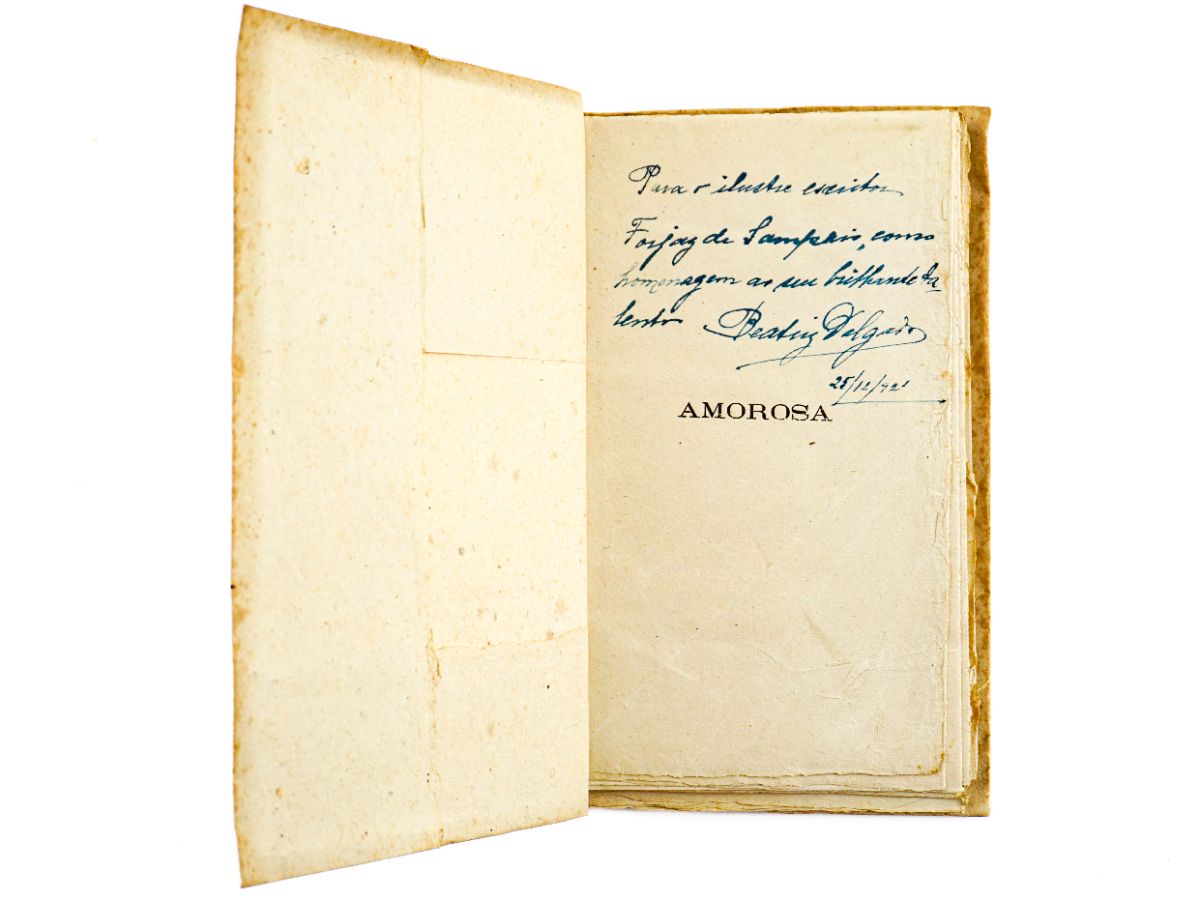 Para o ilustre escritor
Forjaz de Sampaio, como
homenagem ao seu brilhante ta-
lento Beatriz Delgado
25/12/921
AMOROSA